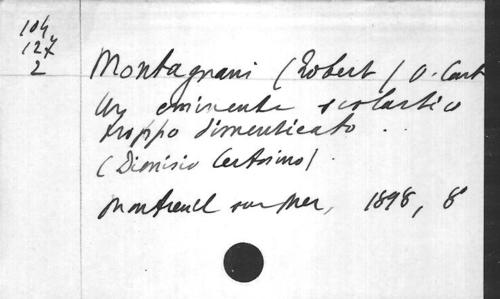 104.
127
2
Montagnani (Robert) O. Cart
Un eminente scolastico
troppo dimenticato ...
(Dionisio Certosino).
Montreuil sur Mer, 1898, 8°